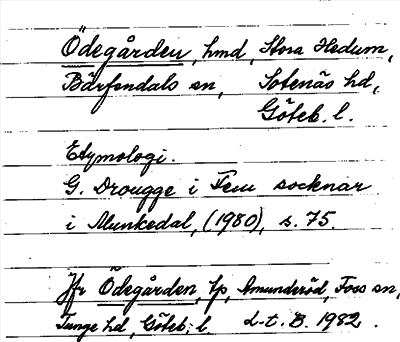 Ödegården, hmd, Stora Hedum,
Bärfendals sn, Sotenäs hd,
Göteb. l.
Etymologi.
G. Drougge i Fem socknar
i Munkedal, (1980), s. 75.
Jfr Ödegården, tp, Amunderöd, Foss sn,
Tunge hd, Göteb. l. L-t. B. 1982.